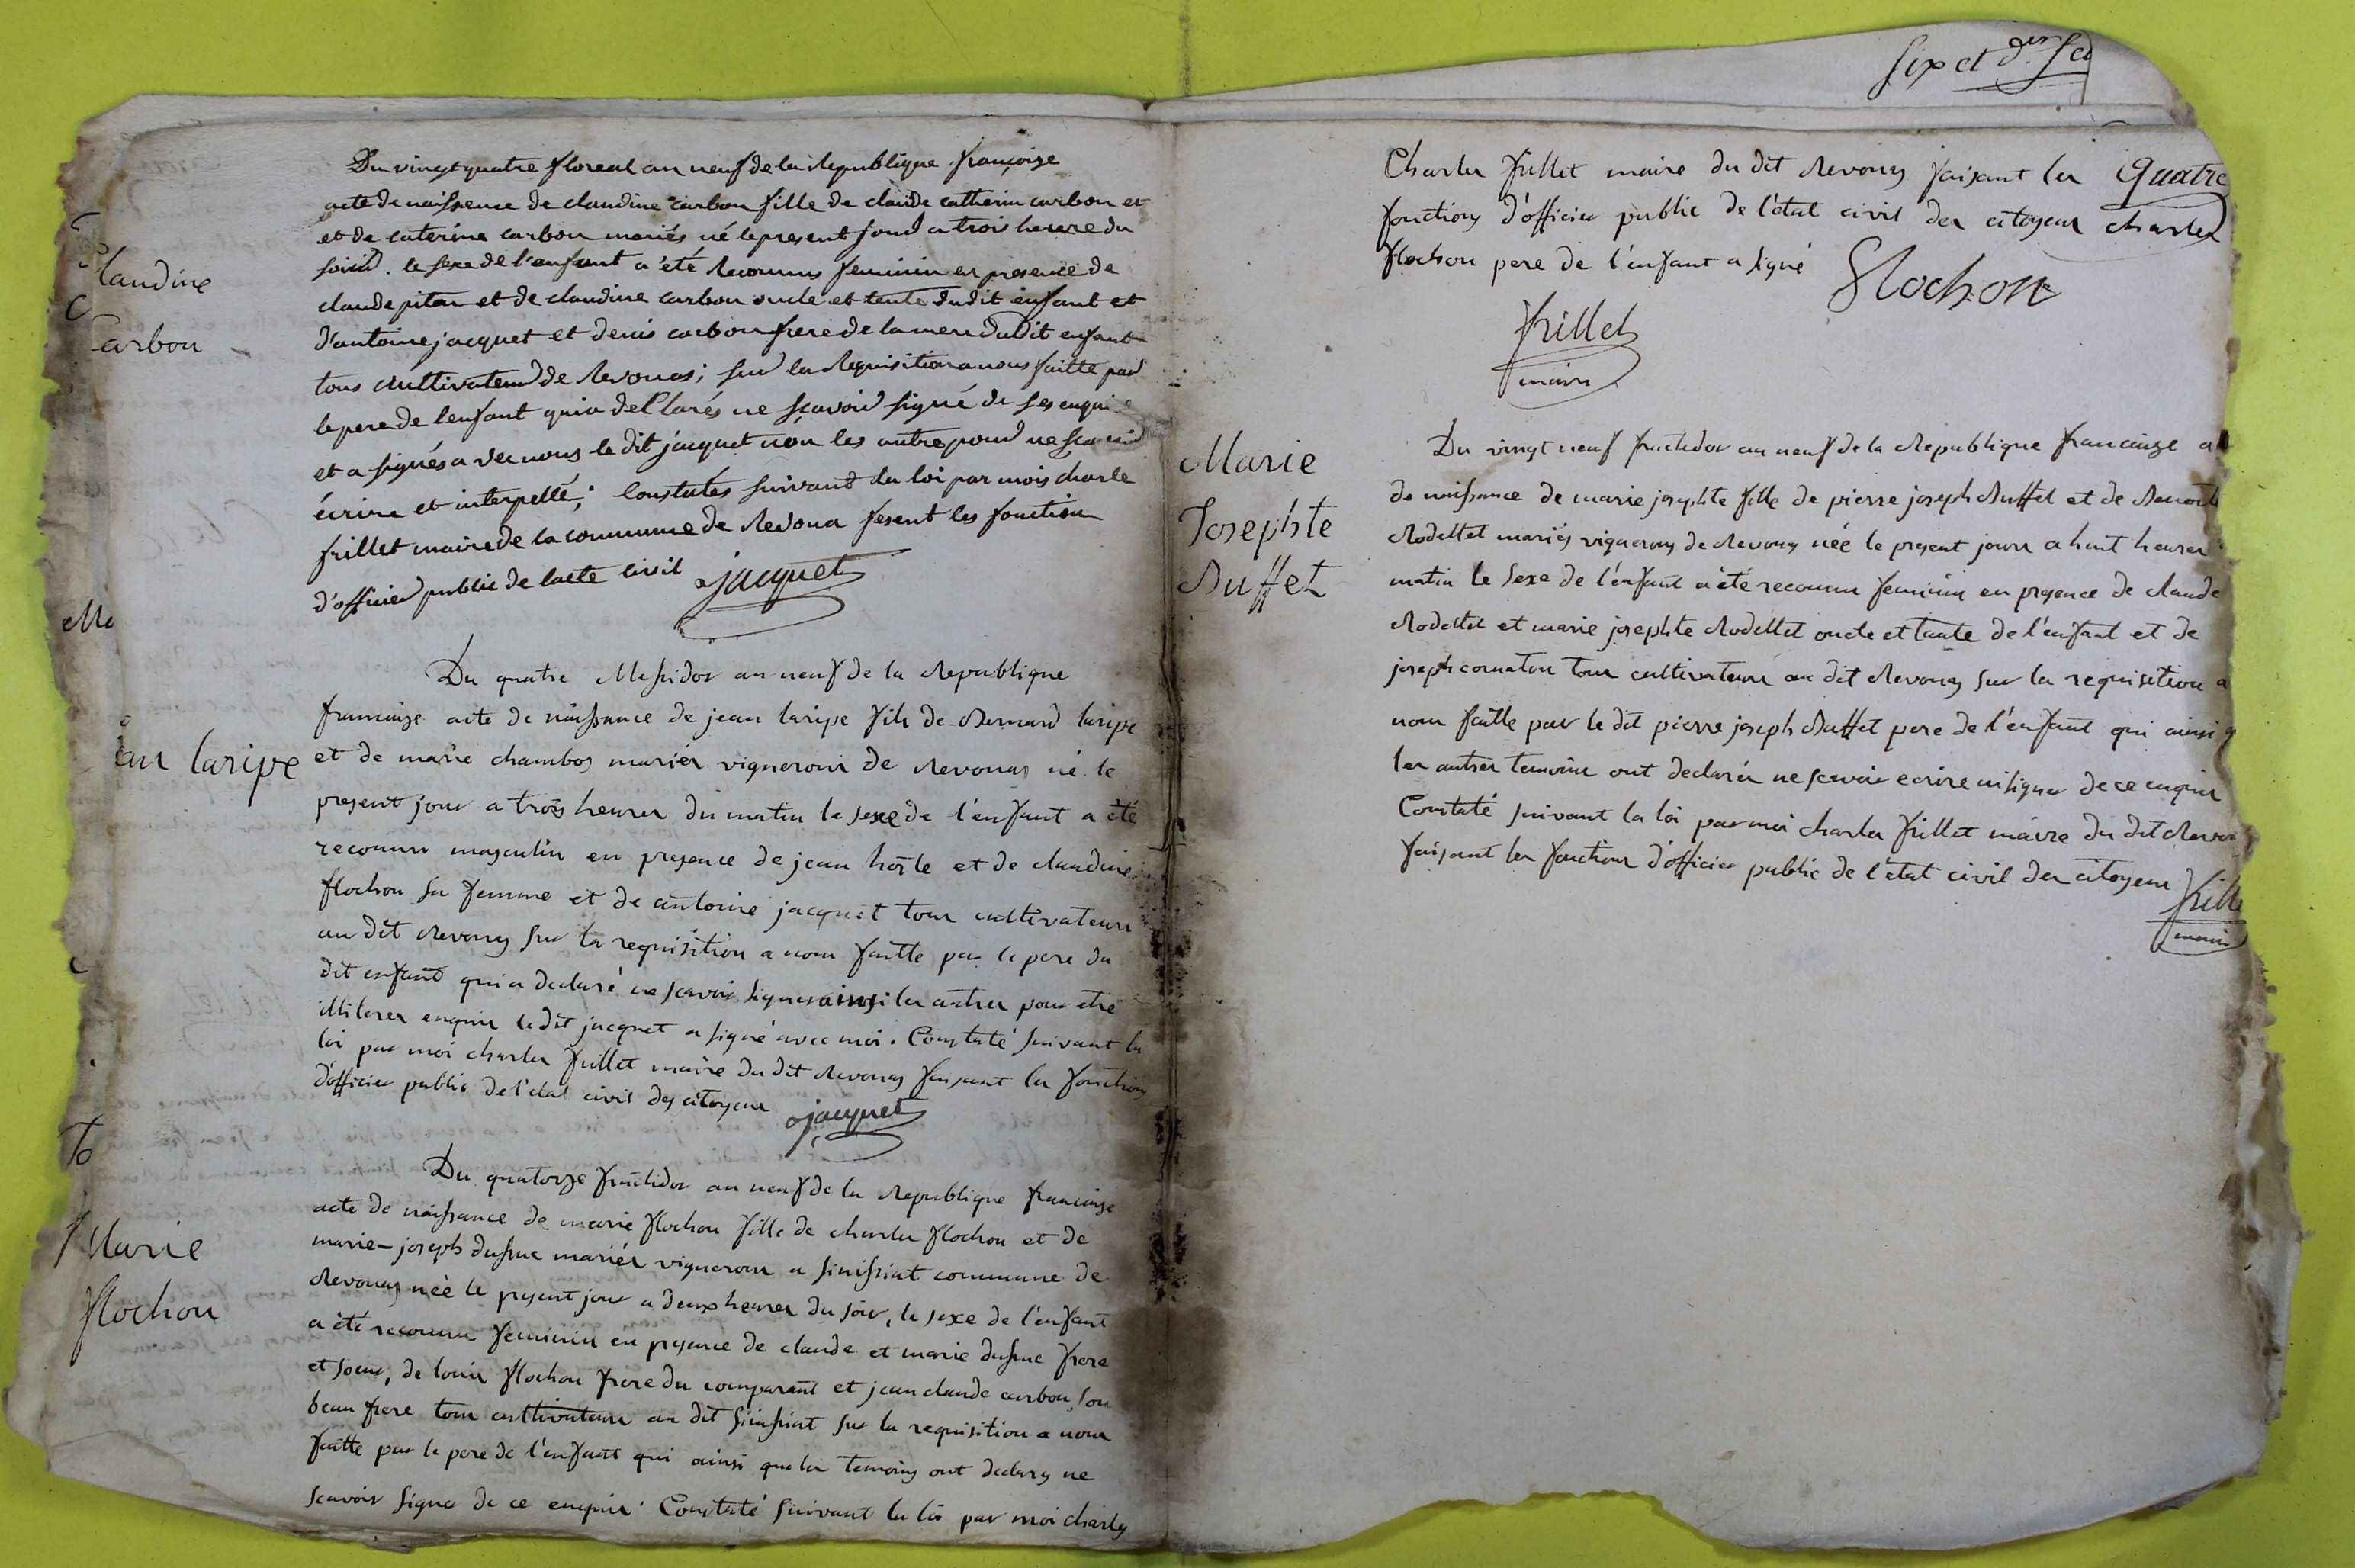 Du vingt quatre floreal an neuf de la Republique françoize
acte de naissence de claudine carbon fille de claude catherin carbon et
et de caterine carbon mariés né le present jour a trois heure du
soird. le sexe de l'enfant a été Reconnus feminin en presence de
Claudine
claude pitan et de claudine carbon oncle et tente dudit enfant et
Carbon
d'antoine jacquet et denis carbon frere de la mere dudit enfant
tous cultivateur de Revonas; sur la Requisition a nous faitte par
le pere de lenfant qui a decllarés ne sçavoir signé de ses enquis
et a signés avec nous le dit jacquet non les autre pour ne sçavoir
écrire et interpellé; Constatés suivant la loi par mois charle
frillet maire de la commune de Revona fesent les fonction
d'officier public de lacte civil jacquet
Du quatre Messidor an neuf de la Republique
francaize acte de naissance de jean laripe fils de Bernard laripe
Jean laripe
et de marie chambos mariés vignerons de Revonas né le
present jour a trois heures du matin le sexe de l'enfant a été
reconnu masculin en presence de jean hote et de claudine
flochon sa femme et de antoine jacquet tous cultivateurs
au dit Revonas sur la requisition a nous faitte par le pere du
dit enfant qui a declaré ne scavoir signer ainsi les autres pour etre
illiteres enquis le dit jacquet a signé avec moi. Constaté suivant la
loi par moi charles frillet maire du dit Revonas faisant les fonctions
d'officier public de l'etat civil des citoyens jacquet
Du quatorze fructidor an neuf de la Republique francaize
acte de naissance de marie flochon fille de charles flochon et de
Marie
marie-joseph dufour mariés vignerons a sinissiat commune de
flochon
Revonas née le present jour a deux heures du soir, le sexe de l'enfant
a été reconnu feminin en presence de claude et marie frere
et soeur, de louis flochon frere du comparant et jean claude carbon son
beau frere tous cultivateurs au dit sinissiat sur la requisition a nous
faitte par le pere de l'enfant qui ainsi que les temoins ont declarés ne
scavoir signer de ce enquis. Constaté suivant la loi par moi charles
six et
Quatre
Charles frillet maire du dit Revonas faisant les
fonctions d'officier public de l'état civil des citoyens charles
flochon pere de l'enfant a signé flochon
frillet
maire
Du vingt neuf fructidor an neuf de la Republique francaize
Marie
de naissance de marie josephte fille de pierre joseph Buffet et de Benoite
Josephte
Rodettet mariés vignerons de Revonas née le present jour a huit heures
Buffet
matin le sexe de l'enfant a été reconnu feminin en presence de claude
Rodettet et marie josephte Rodettet oncle et tante de l'enfant et de
joseph cornaton tous cultivateurs au dit Revonas sur la requisition a
nous faitte par le dit pierre joseph Buffet pere de l'enfant qui ainsi
les autres temoins ont declarés ne scavoir ecrire ni signer de ce enquis
Constaté suivant la loi par moi charles frillet maire du dit Revonas
faisant les fonctions d'officier public de l'état civil des citoyens frillet
maire